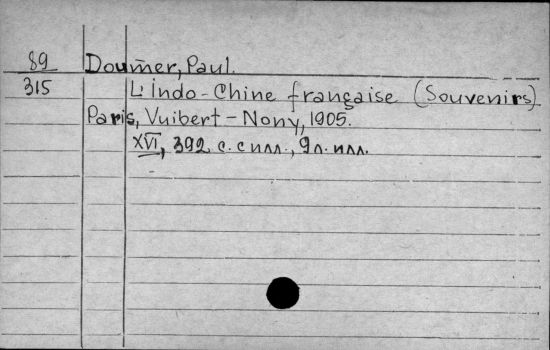 89 Doumer, Paul.
315 L'Indo-Chine française (Souvenirs)
Paris, Vuibert-Nony, 1905.
XVI, 392 с. с илл., 9 л. илл.